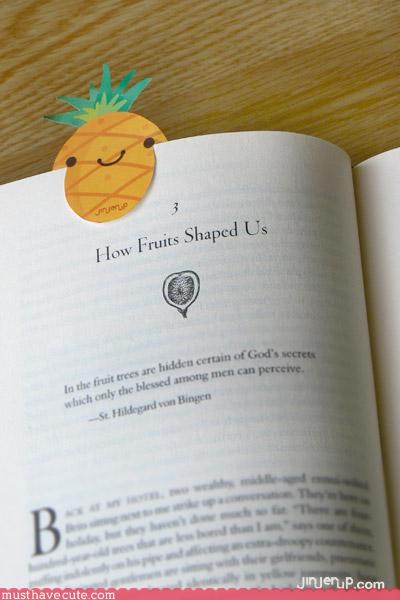 JinJerup
3
How Fruits Shaped Us
In the fruit trees are hidden certain of God's secrets
which only the blessed among men can perceive.
—St. Hildegard von Bingen
BACK AT MY HOTEL, two wealthy, middle-aged
Brits sitting next to me strike up a conversation. They're here on
holiday, but they haven't done much so far. "There are four-
hundred-year-old trees that are less bored than I am," says one of them,
on his pipe and affecting an extra-droopy
are sitting with their girlfriends,
identically in yellow
JinJerup.com
musthavecute.com